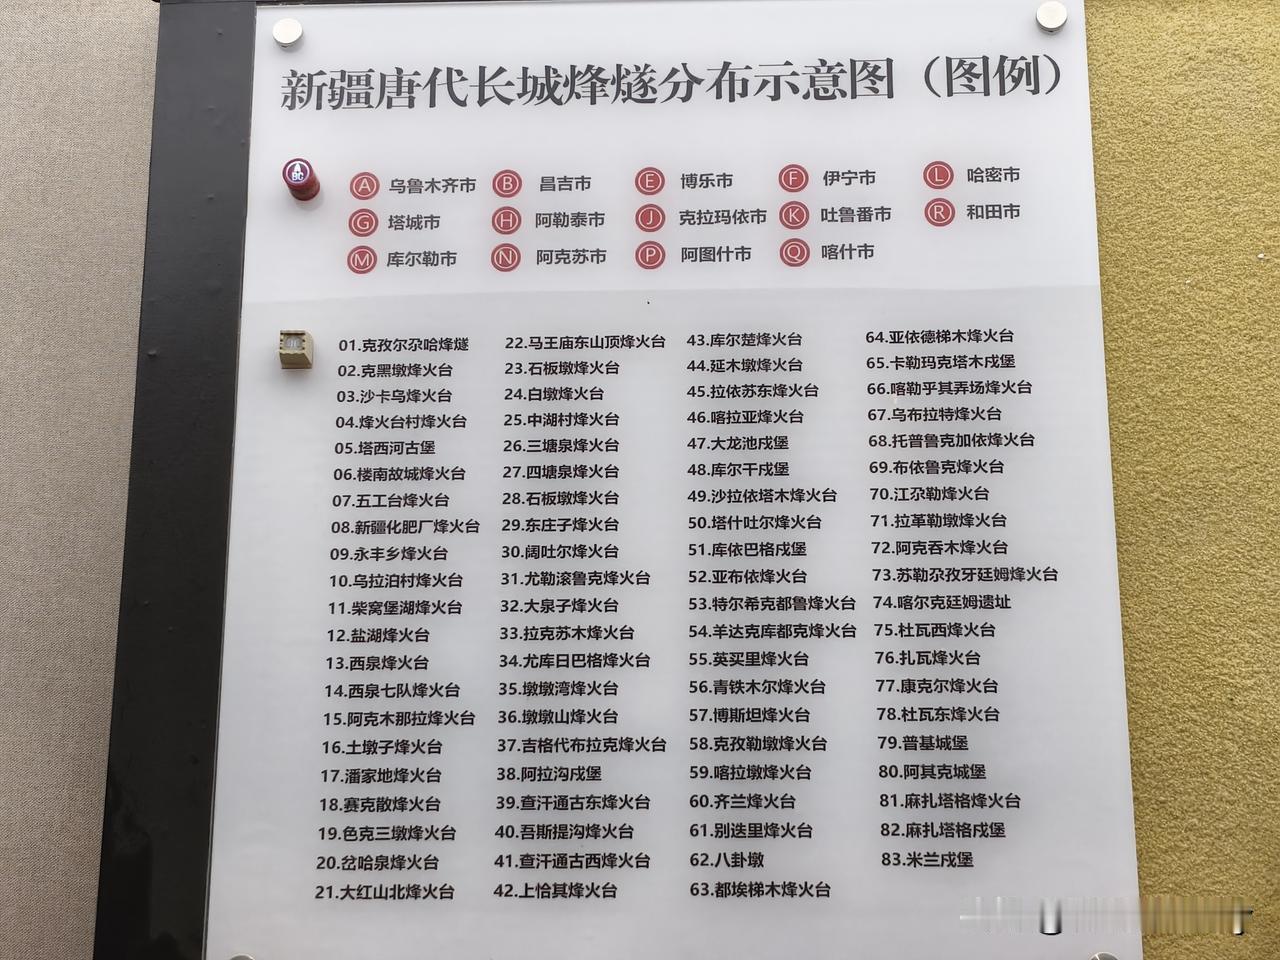 新疆唐代长城烽燧分布示意图（图例）
A 乌鲁木齐市 B 昌吉市 E 博乐市 F 伊宁市 L 哈密市
G 塔城市 H 阿勒泰市 J 克拉玛依市 K 吐鲁番市 R 和田市
M 库尔勒市 N 阿克苏市 P 阿图什市 Q 喀什市
01.克孜尔尕哈烽燧
02.克黑墩烽火台
03.沙卡乌烽火台
04.烽火台村烽火台
05.塔西河古堡
06.楼南故城烽火台
07.五工台烽火台
08.新疆化肥厂烽火台
09.永丰乡烽火台
10.乌拉泊村烽火台
11.柴窝堡湖烽火台
12.盐湖烽火台
13.西泉烽火台
14.西泉七队烽火台
15.阿克木那拉烽火台
16.土墩子烽火台
17.潘家地烽火台
18.赛克散烽火台
19.色克三墩烽火台
20.岔哈泉烽火台
21.大红山北烽火台
22.马王庙东山顶烽火台
23.石板墩烽火台
24.白墩烽火台
25.中湖村烽火台
26.三塘泉烽火台
27.四塘泉烽火台
28.石板墩烽火台
29.东庄子烽火台
30.阔吐尔烽火台
31.尤勒滚鲁克烽火台
32.大泉子烽火台
33.拉克苏木烽火台
34.尤库日巴格烽火台
35.墩墩湾烽火台
36.墩墩山烽火台
37.吉格代布拉克烽火台
38.阿拉沟戍堡
39.查汗通古东烽火台
40.吾斯提沟烽火台
41.查汗通古西烽火台
42.上恰其烽火台
43.库尔楚烽火台
44.延木墩烽火台
45.拉依苏东烽火台
46.喀拉亚烽火台
47.大龙池戍堡
48.库尔干戍堡
49.沙拉依塔木烽火台
50.塔什吐尔烽火台
51.库依巴格戍堡
52.亚布依烽火台
53.特尔希克都鲁烽火台
54.羊达克库都克烽火台
55.英买里烽火台
56.青铁木尔烽火台
57.博斯坦烽火台
58.克孜勒墩烽火台
59.喀拉墩烽火台
60.齐兰烽火台
61.别迭里烽火台
62.八卦墩
63.都埃梯木烽火台
64.亚依德梯木烽火台
65.卡勒玛克塔木戍堡
66.喀勒乎其弄场烽火台
67.乌布拉特烽火台
68.托普鲁克加依烽火台
69.布依鲁克烽火台
70.江尕勒烽火台
71.拉革勒墩烽火台
72.阿克吞木烽火台
73.苏勒尕孜牙廷姆烽火台
74.喀尔克廷姆遗址
75.杜瓦西烽火台
76.扎瓦烽火台
77.康克尔烽火台
78.杜瓦东烽火台
79.普基城堡
80.阿其克城堡
81.麻扎塔格烽火台
82.麻扎塔格戍堡
83.米兰戍堡